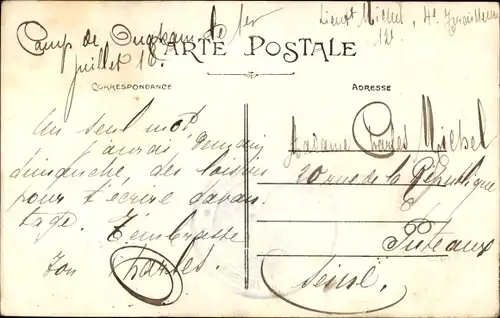 Camp de le 1er
juillet 18.
Lieut Michel, 4e Tirailleurs
12e
CARTE POSTALE
CORRESPONDANCE
ADRESSE
Un seul mot,
j'aurai, demain
dimanche, des loisirs
pour t'écrire davan
tage. T'embrasse
Ton Charles.
Madame Charles Michel
20 rue de la République
Puteaux
Seine.